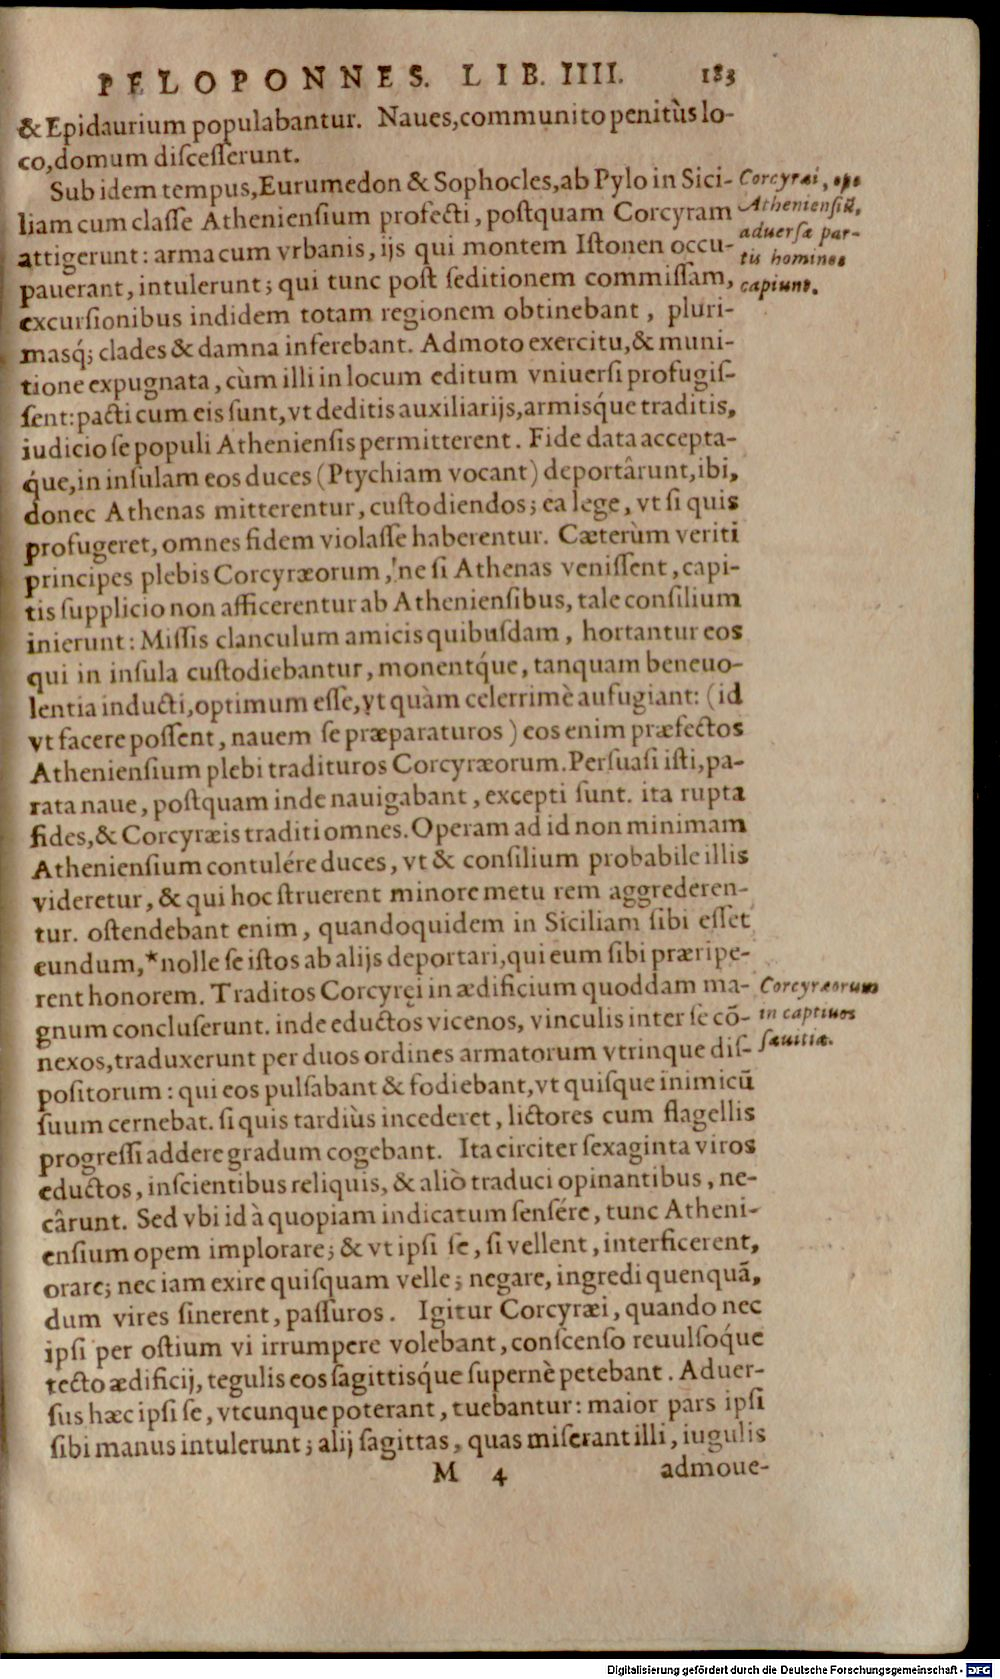 PELOPONNES. LIB. IIII. 183
& Epidaurium populabantur. Naues, communito penitùs lo-
co, domum discesserunt.
Sub idem tempus, Eurumedon & Sophocles, ab Pylo in Sici-
liam cum classe Atheniensium profecti, postquam Corcyram
attigerunt: arma cum vrbanis, ijs qui montem Istonen occu-
pauerant, intulerunt; qui tunc post seditionem commissam,
excursionibus indidem totam regionem obtinebant, pluri-
masq́; clades & damna inferebant. Admoto exercitu, & muni-
tione expugnata, cùm illi in locum editum vniuersi profugis-
sent: pacti cum eis sunt, vt deditis auxiliarijs, armisq́ue traditis,
iudicio se populi Atheniensis permitterent. Fide data accepta-
q́ue, in insulam eos duces (Ptychiam vocant) deportârunt, ibi,
donec Athenas mitterentur, custodiendos; ea lege, vt si quis
profugeret, omnes fidem violasse haberentur. Cæterùm veriti
principes plebis Corcyræorum, ne si Athenas venissent, capi-
tis supplicio non afficerentur ab Atheniensibus, tale consilium
inierunt: Missis clanculum amicis quibusdam, hortantur eos
qui in insula custodiebantur, monentq́ue, tanquam beneuo-
lentia inducti, optimum esse, vt quàm celerrimè aufugiant: (id
vt facere possent, nauem se præparaturos) eos enim præfectos
Atheniensium plebi tradituros Corcyræorum. Persuasi isti, pa-
rata naue, postquam inde nauigabant, excepti sunt. ita rupta
fides, & Corcyræis traditi omnes. Operam ad id non minimam
Atheniensium contulére duces, vt & consilium probabile illis
videretur, & qui hoc struerent minore metu rem aggrederen-
tur. ostendebant enim, quandoquidem in Siciliam sibi esset
eundum, *nolle se istos ab alijs deportari, qui eum sibi præripe-
rent honorem. Traditos Corcyręi in ædificium quoddam ma-
gnum concluserunt. inde eductos vicenos, vinculis inter se cō-
nexos, traduxerunt per duos ordines armatorum vtrinque dis-
positorum: qui eos pulsabant & fodiebant, vt quisque inimicū
suum cernebat. si quis tardiùs incederet, lictores cum flagellis
progressi addere gradum cogebant. Ita circiter sexaginta viros
eductos, inscientibus reliquis, & aliò traduci opinantibus, ne-
cârunt. Sed vbi id à quopiam indicatum sensére, tunc Atheni-
ensium opem implorare; & vt ipsi se, si vellent, interficerent,
orare; nec iam exire quisquam velle; negare, ingredi quenquā,
dum vires sinerent, passuros. Igitur Corcyræi, quando nec
ipsi per ostium vi irrumpere volebant, conscenso reuulsoq́ue
tecto ædificij, tegulis eos sagittisq́ue supernè petebant. Aduer-
sus hæc ipsi se, vtcunque poterant, tuebantur: maior pars ipsi
sibi manus intulerunt; alij sagittas, quas miserant illi, iugulis
M 4 admoue-
Corcyræi, ope
Atheniensiū,
aduersæ par-
tis homines
capiunt.
Corcyræorum
in captiuos
sæuitia.
Digitalisierung gefördert durch die Deutsche Forschungsgemeinschaft - DFG